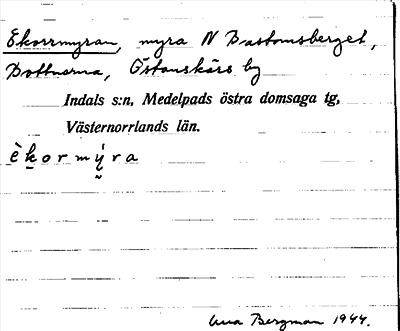 Ekorrmyran, myra N Bastomsberget,
Bottnarna, Östanskärs by
Indals s:n, Medelpads östra domsaga tg,
Västernorrlands län.
èkormýra
Bergman 1944.